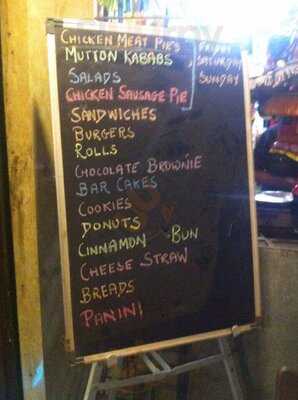 CHICKEN MEAT PIE'S
MUTTON KABABS
SALADS
CHICKEN SAUSAGE PIE
FRIDAY
, SATURDAY
SUNDAY
SANDWICHES
BURGERS
ROLLS
CHOCOLATE BROWNIE
BAR CAKES
COOKIES
DONUTS
CINNAMON BUN
CHEESE STRAW
BREADS
PANINI